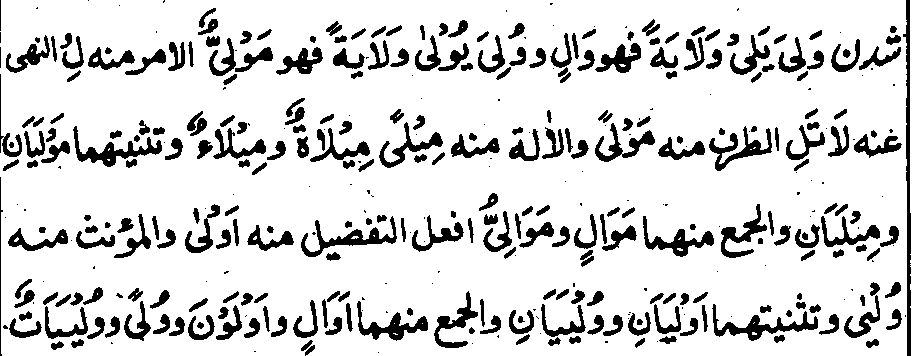 شدن وَلِیَ یَلِیْ وَلَایَةً فهو وَالٍ و وُلِیَ یُوْلٰی وَلَایَةً فهو مَوْلِیٌّ الامر منه لِ و النهی
عنه لَا تَلِ الظرف منه مَوْلًی والاٰلة منه مِیْلًی مِیْلَاةٌ و مِیْلَاءٌ و تثنیتهما مَوْلَیَانِ
و مِیْلَیَانِ والجمع منهما مَوَالٍ و مَوَالِیُّ افعل التفضیل منه اَوْلٰی والمؤنث منه
وُلْیٰی و تثنیتهما اَوْلَیَانِ و وُلْیَیَانِ والجمع منهما اَوَالٍ و اَوْلَوْنَ و وُلًی و وُلْیَیَاتٌ.